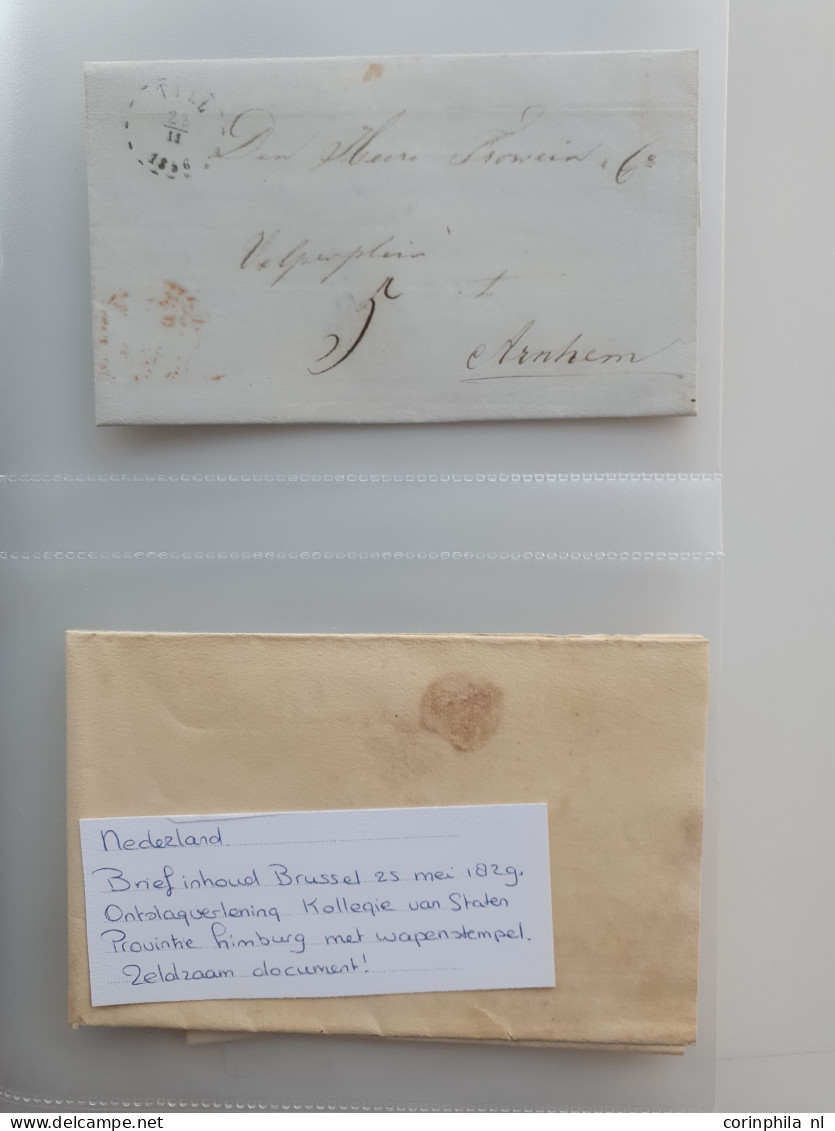 23
11
1856
Den Heere Frowein
Velperplein
5
Arnhem
Nederland.
Brief inhoud Brussel 25 mei 1829.
Ontslagverlening Kollegie van Staten
Provintie Limburg met wapenstempel.
Zeldzaam document!
www.corinphila nl